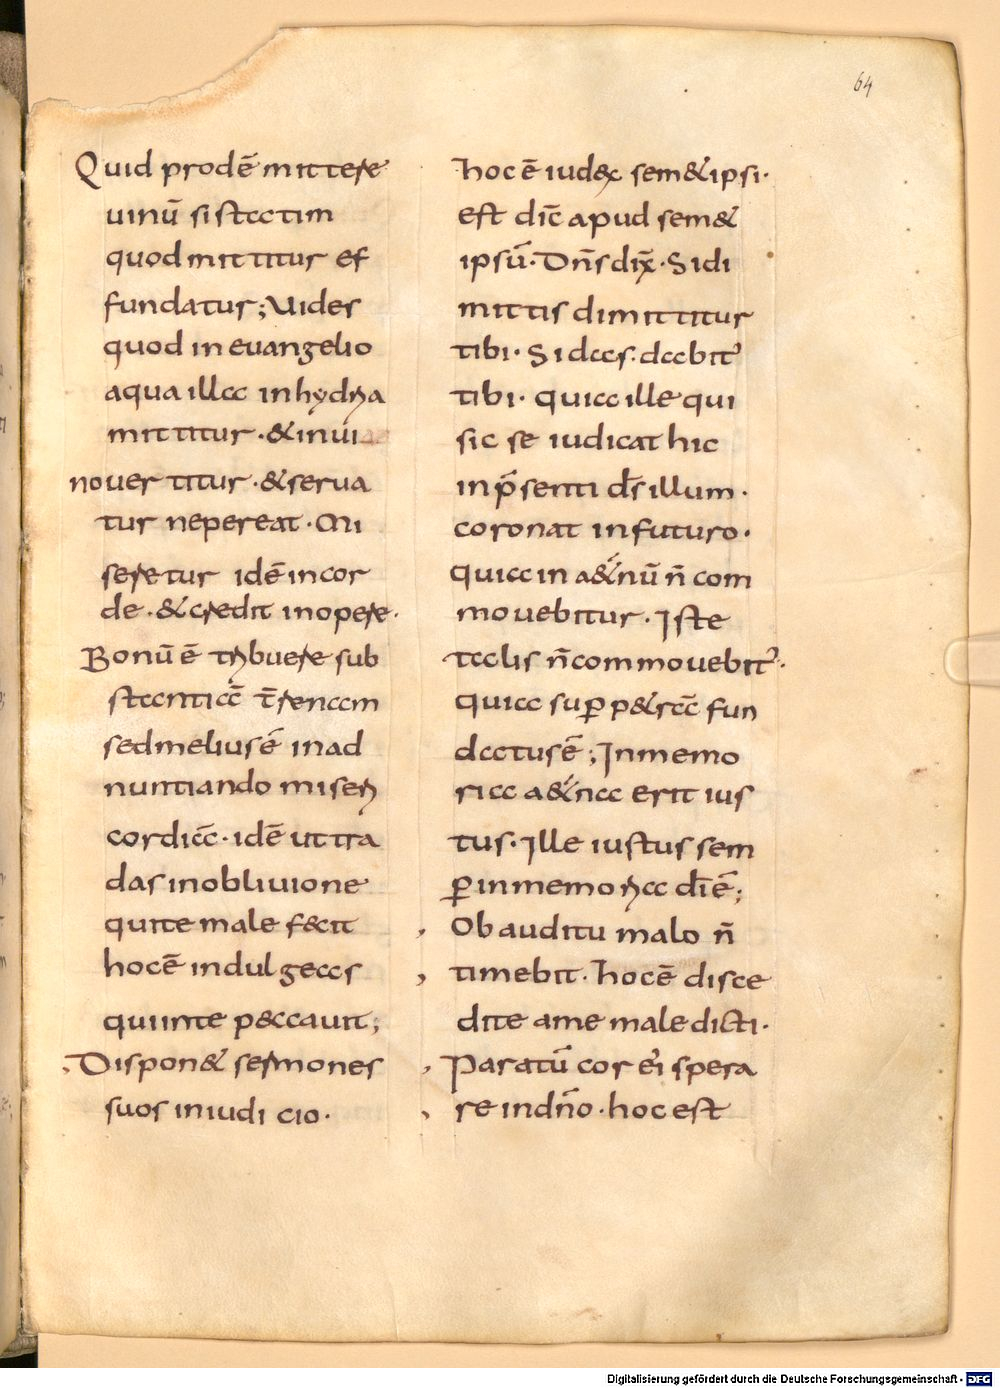 64
Quid prodē mittere
uinū si statim
quod mittitur ef
fundatur; Uides
quod in euangelio
aqua illa in hydria
mittitur · & in uī
no uertitur · & serua
tur ne pereat · Mi
seretur idē in cor
de · & credit in opere ·
Bonū ē tribuere sub
stantiā t̄renam
sed melius ē in ad
nuntiando miseri
cordiā · idē ut tra
das in obliuione
qui te male fecit
hoc ē indulgeas
qui in te peccauit;
Dispon& sermones
suos in iudicio ·
hoc ē iudex sem& ipsi ·
est dic̄ apud sem&
ipsū · Dn̄s dix̄ · Si di
mittis dimittitur
tibi · Si das · dabit᾿
tibi · quia ille qui
sic se iudicat hic
in p̄senti d̄s illum ·
coronat in futuro ·
quia in a&nū n̄ com
mouebitur · Iste
talis n̄ commouebit᾿ ·
quia sup̱ p&rā fun
datus ē; In memo
ria a&na erit ius
tus · Ille iustus sem
p̱ in memoria dī ē;
Ob auditu malo n̄
timebit · hoc ē disce
dite a me maledicti ·
Paratū cor ei᾿ spera
re in dn̄o · hoc est
Digitalisierung gefördert durch die Deutsche Forschungsgemeinschaft - DFG